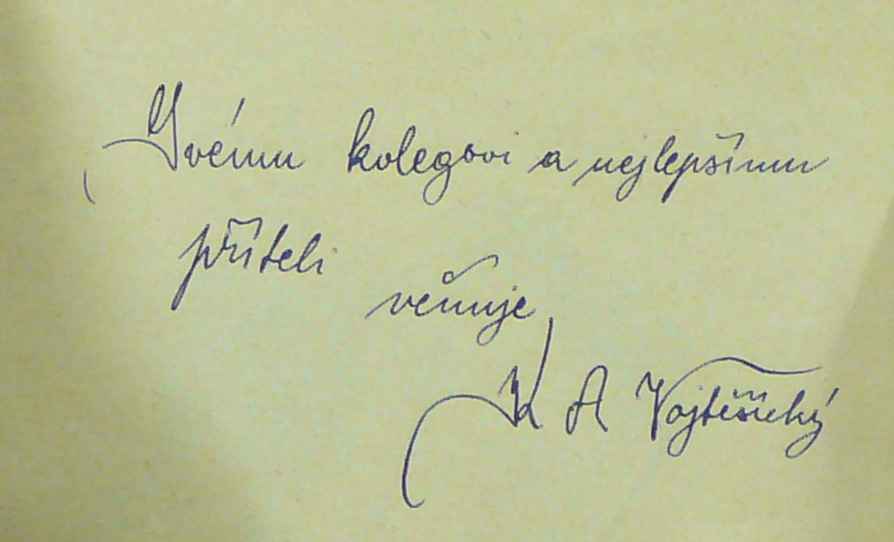 Svému kolegovi a nejlepšímu
příteli
věnuje
K A Vojtěšický